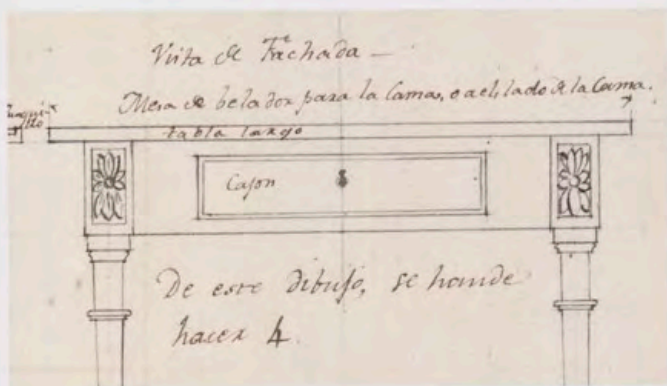 Vista de Fachada —
Mesa de belador para la Camas, o a el lado de la Cama.
tabla largo
Cajon
De este dibujo, se han de
hacer 4.